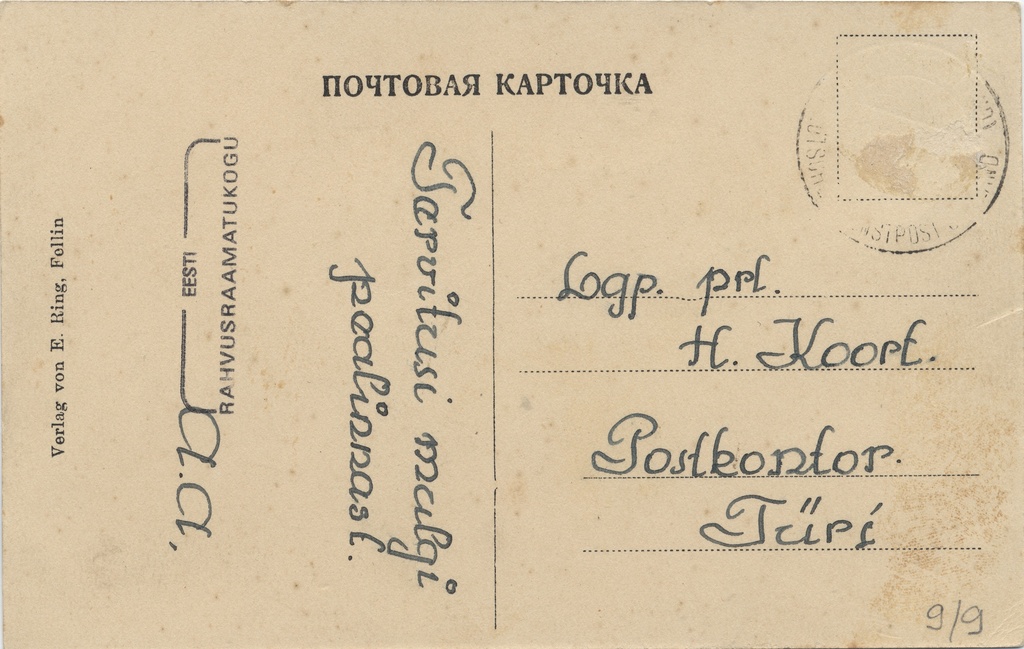 ПОЧТОВАЯ КАРТОЧКА
Verlag von E. Ring, Fellin
EESTI
RAHVUSRAAMATUKOGU
Tarvitusi mulgi
pealinnast.
A.A,
Lgp. prl.
H. Koort.
Postkontor.
Türi
9/9